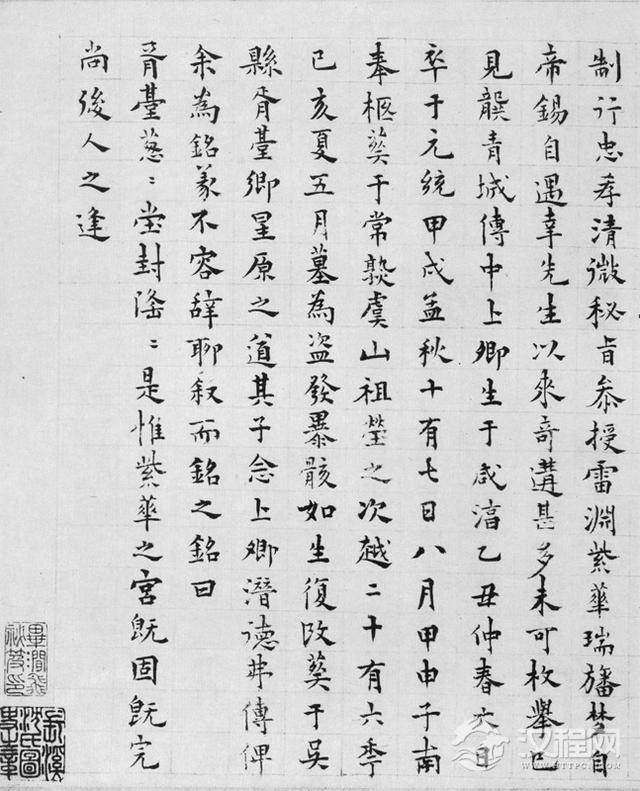 制行忠孝清微秘旨叅授雷淵紫華瑞旛梵自
帝錫自遇幸先生以來奇遘甚多未可枚舉已
見饌青城傳中上卿生于咸淳乙丑仲春六日
卒于元統甲戌孟秋十有七日八月甲申子南
奉柩葬于常熟虞山祖塋之次越二十有六季
己亥夏五月墓為盜發暴骸如生復改葬于吳
縣胥臺鄉星原之道其子念上卿潛德弗傳俾
余為銘義不容辭聊叙而銘之銘曰
胥臺葱〻堂封滃〻是惟紫華之宮既固既完
尚後人之逢
汉程网